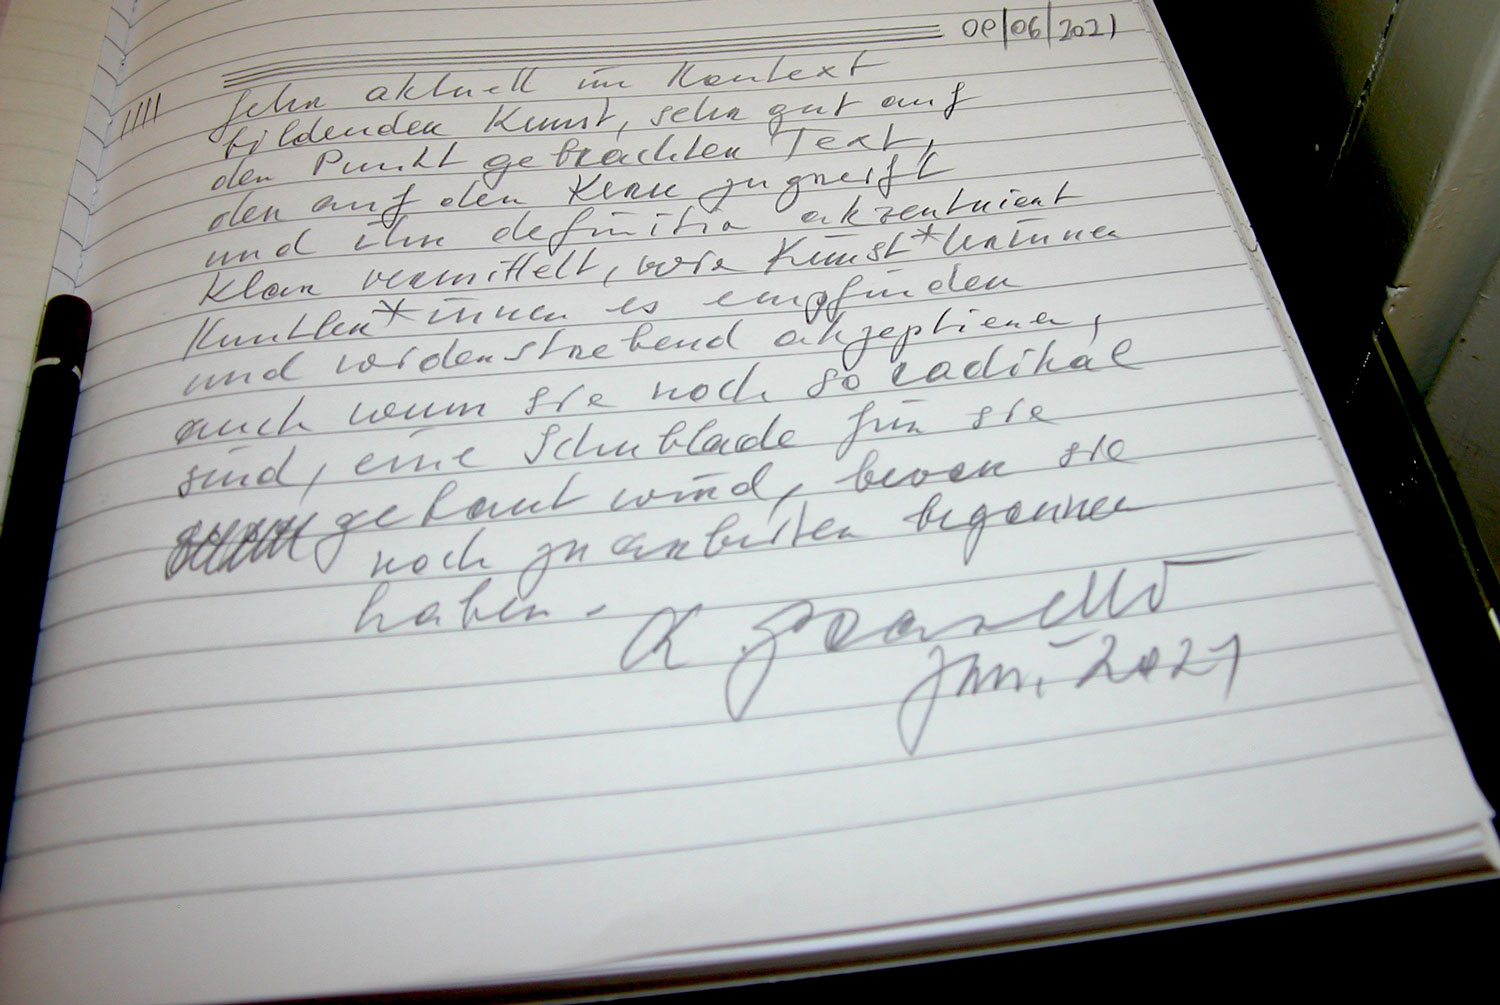 09/06/2021
Sehr aktuell im Kontext
bildenden Kunst, sehr gut auf
den Punkt gebrachten Text,
den auf den Kern zugreift
und ihn definitiv akzentuiert
klar vermittelt, wie Kunst*
Künstler*innen es empfinden
und widerstrebend akzeptieren,
auch wenn sie noch so radikal
sind, eine Schublade für sie
gebaut wird, bevor sie
noch zu arbeiten begonnen
haben.
Juni 2021